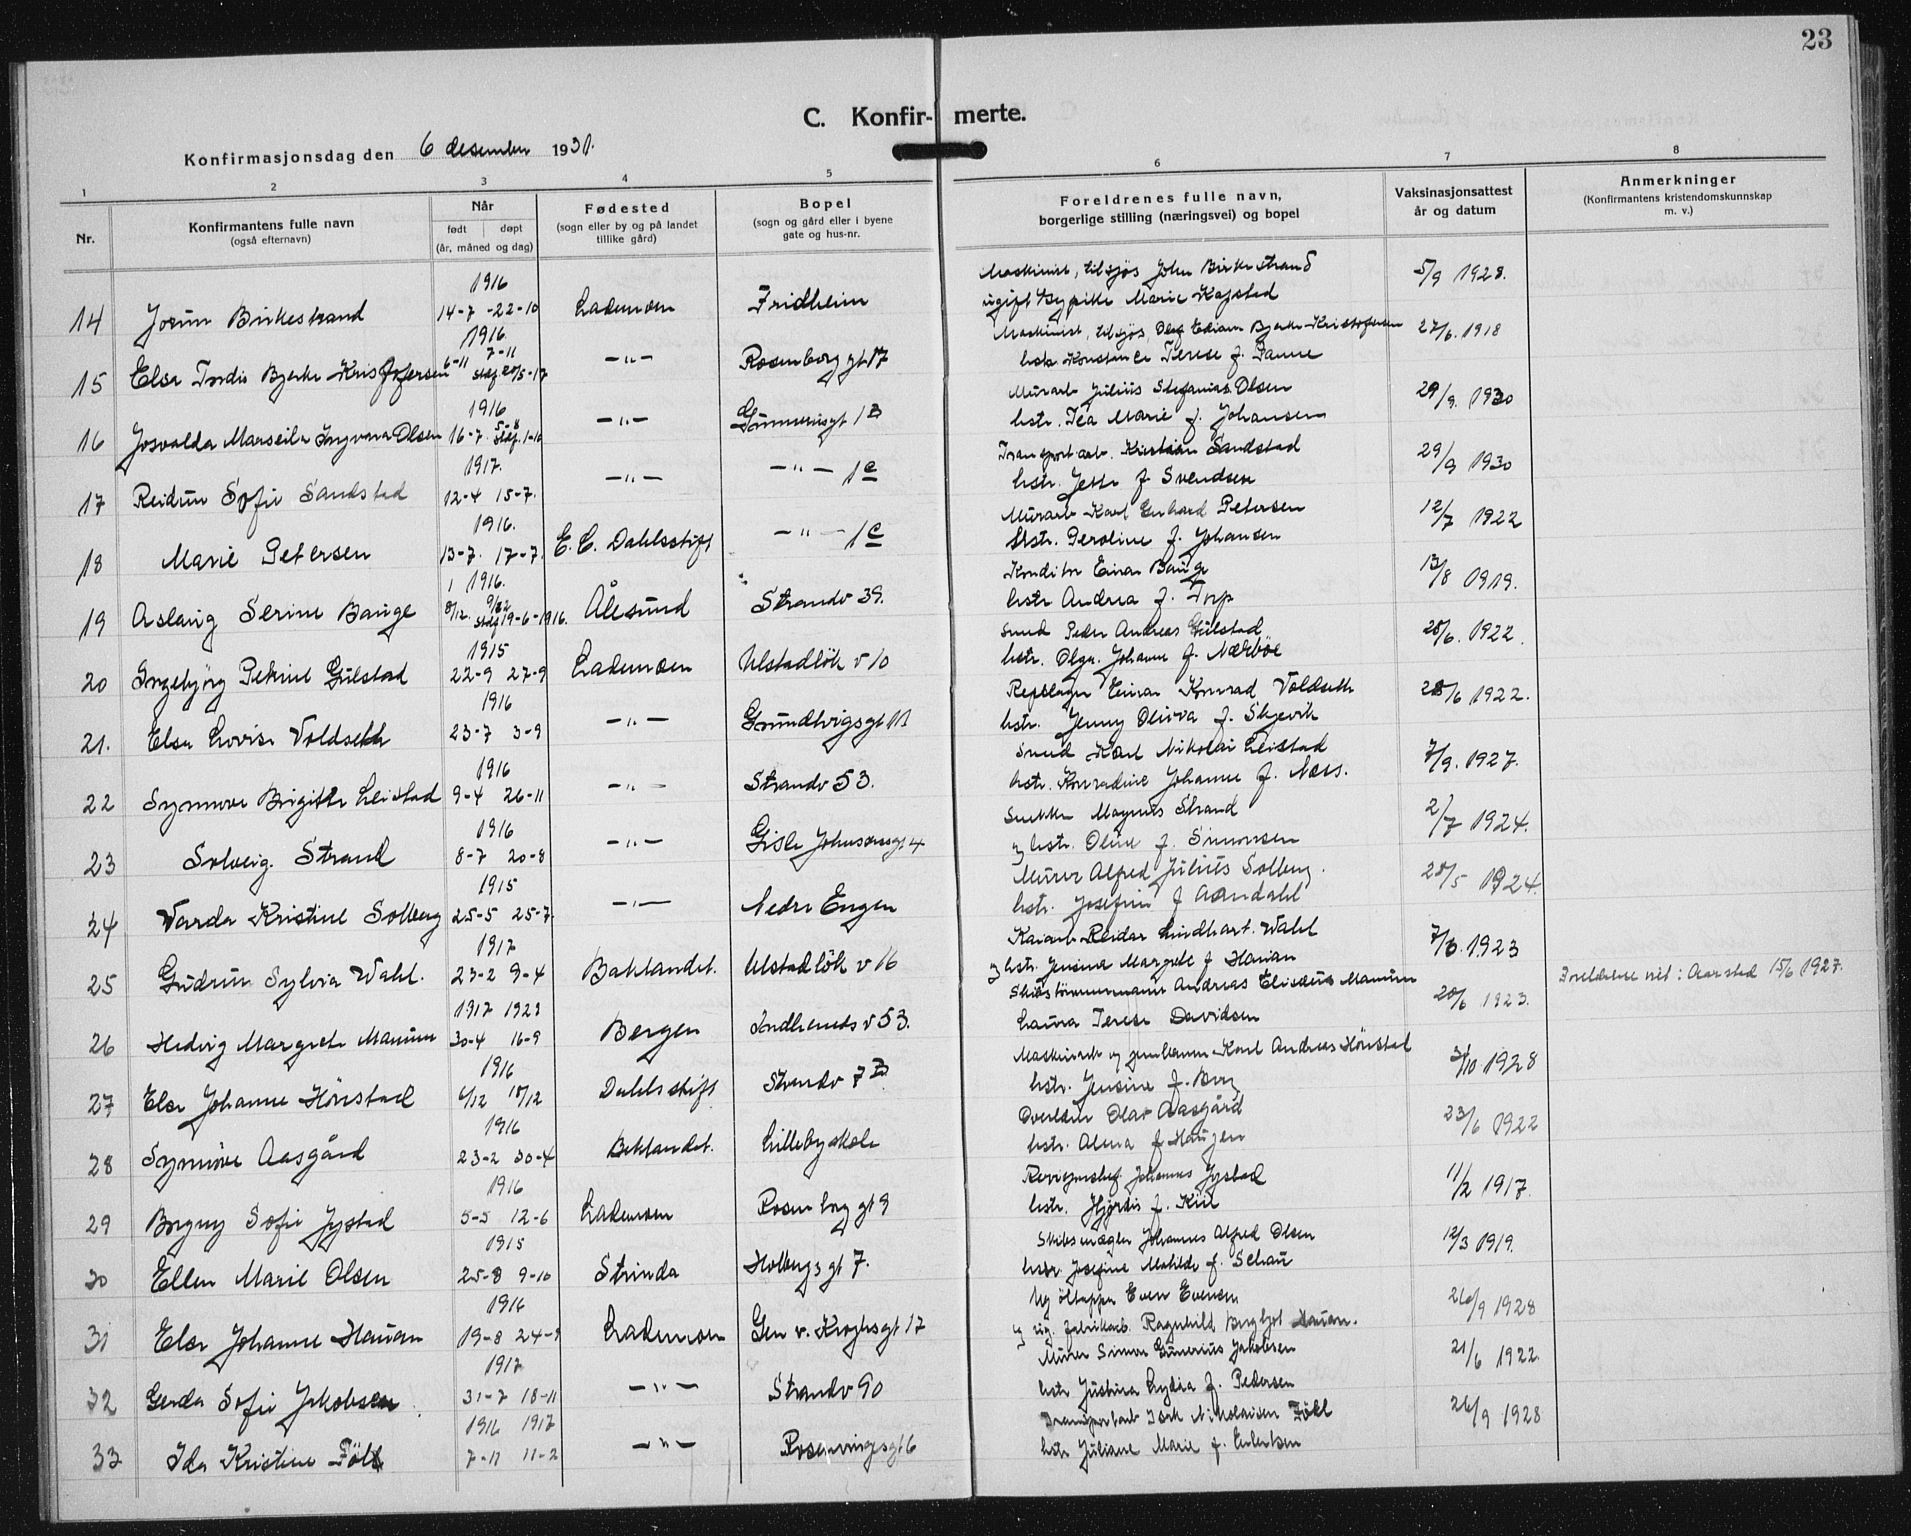 23
C. Konfirmerte.
Konfirmasjonsdag den 6 desember 1931.
1 2 3 4 5 6 7 8
Nr.
Konfirmantens fulle navn
(også efternavn)
Når
født døpt
(år, måned og dag)
Fødested
(sogn eller by og på landet
tillike gård)
Bopel
(sogn og gård eller i byene
gate og hus-nr.
Foreldrenes fulle navn,
borgerlige stilling (næringsvei) og bopel
Vaksinasjonsattest
år og datum
Anmerkninger
(Konfirmantens kristendomskunnskap
m. v.)
1916 Maskinist, tilsjøs John Birkestrand
14 Jorun Birkestrand 14-7 -22-10 Lademoen Fridheim ugift Marie Kojstad 5/9 1928.
1916 Maskinist, tilsjøs, Olaf Bjerke-Kristofersen
15 Else Tordis Bjerke Kristofersen 6-11 7-11 stdf. 20/5-17 -"- Rosenborg gt 17 hstr. Konstance Terese f. 27/6. 1918
1916 Murarb Julius Stefanias Olsen
16 Josvalda Marseila Ingvara Olsen 16-7. 5-8 stdf. 1-10 -"- Gunnerusgt 1B hstr. Tea Marie f. Johansen 29/9. 1930
1917. Transportarb. Kristian Sandstad
17 Reidun Sofie Sandstad 12-4 15-7. -"- -"- 1c hstr. Jette f Svendsen 29/9 1930
1916. Murarb Karl Gerhard Petersen
18 Marie Petersen 13-7. 17-7. E. C. Dahlsstift -"- 1c hstr. Peroline f. Johansen 12/7 1922
1916. Konditor Einar Bauge
19 Aslaug Serine Bauge 8/12. stdf 19-6-1916. Ålesund Strandv 39. hstr Andrea f. Torp 13/8 1919.
1915 Smed Peder Andreas Gulstad
20 Ingebjørg Petrine Gulstad 22-9 27-9 Lademoen Ulstadløk v 10 hstr. Olga Johanne f. Nærbøe 28/6. 1922.
1916 Repslager Einar Konrad Voldseth
21. Else Lovise Voldseth 23-7 3-9 -"- Grundtvigsgt 11 hstr. Jenny Oliva f. Skjevik 28/6 1922.
1916 Smed Karl Nikolai Leistad
22 Synnøve Birgitte Leistad 9-4 26-11 -"- Strandv 53. hstr. Konradine Johanne f. Næss. 7/9. 1927.
1916 Snekker Magnus Strand
23 Solveig Strand 8-7 20-8 -"- Gisle Johnsonsgt 4 og hstr. Oline f. Simonsen 2/7 1924.
1915 Murer Alfred Julius Solberg.
24 Varda Kristine Solberg 25-5 25-7 -"- Nedre Engen hstr. Josefine f Aandahl 28/5 1924.
1917 Kaiarb. Reidar Lindhart Wahl
25 Gudrun Sylvia Wahl. 23-2 9-4 Baklandet. Ulstadløk v 16 og hstr. Jensine Margrete f Hauan 7/6. 1923
1917 1923 Skibstømmermann Andreas Elisæus Manum
26 Hedvig Margrete Manum 30-4 16-9 Bergen Indherreds v 53. Laura Terese Davidsen 20/6 1923. Foreldrene viet: Aarstad 15/6 1927.
1916 Maskinarb og jernhøvler Karl Andreas Hönstad
27 Else Johanne Hönstad 6/12 18/12 Dahls stift Strandv 7B hstr. Jensine f. Berg 31/10 1928
1916 Overlærer Olav Aasgård
28 Synnøve Aasgård 23-2 30-4 Baklandet. Lillebyskole hstr. Alma f Haugen 23/6 1922
1916 Revisjonschef Johannes Jystad
29 Borgny Sofie Jystad 5-5 12-6 Lademoen Rosenborg gt 9 hstr. Hjørdis f. Kiil 11/2 1917.
1915 Skibsmægler Johannes Alfred Olsen
30 Ellen Marie Olsen 25-8 9-10 Strinda Holbergs gt 7. hstr Josefine Matilde f. Schau 12/3 1919.
1916 Ug öltapper Even Evensen
31 Else Johanne Hauan 19-8 24-9 Lademoen Gen v. Kroghsgt 17 og ug. fabrikarb. Ragnhild Bergljot Hauan. 26/9 1928
1917 Murer Simon Gunerius Jakobsen
32 Gerda Sofie Jakobsen 31-7 18-11 -"- Strandv 90 hstr Justina Lydia f. Pedersen 21/6 1922.
1916 1917 Transportarb Isak Nikolaisen Föll
33 Ida Kristine Föll 7-11 11-2 -"- Rosenvingesgt 6 hstr Juliane Marie f. 26/9 1928